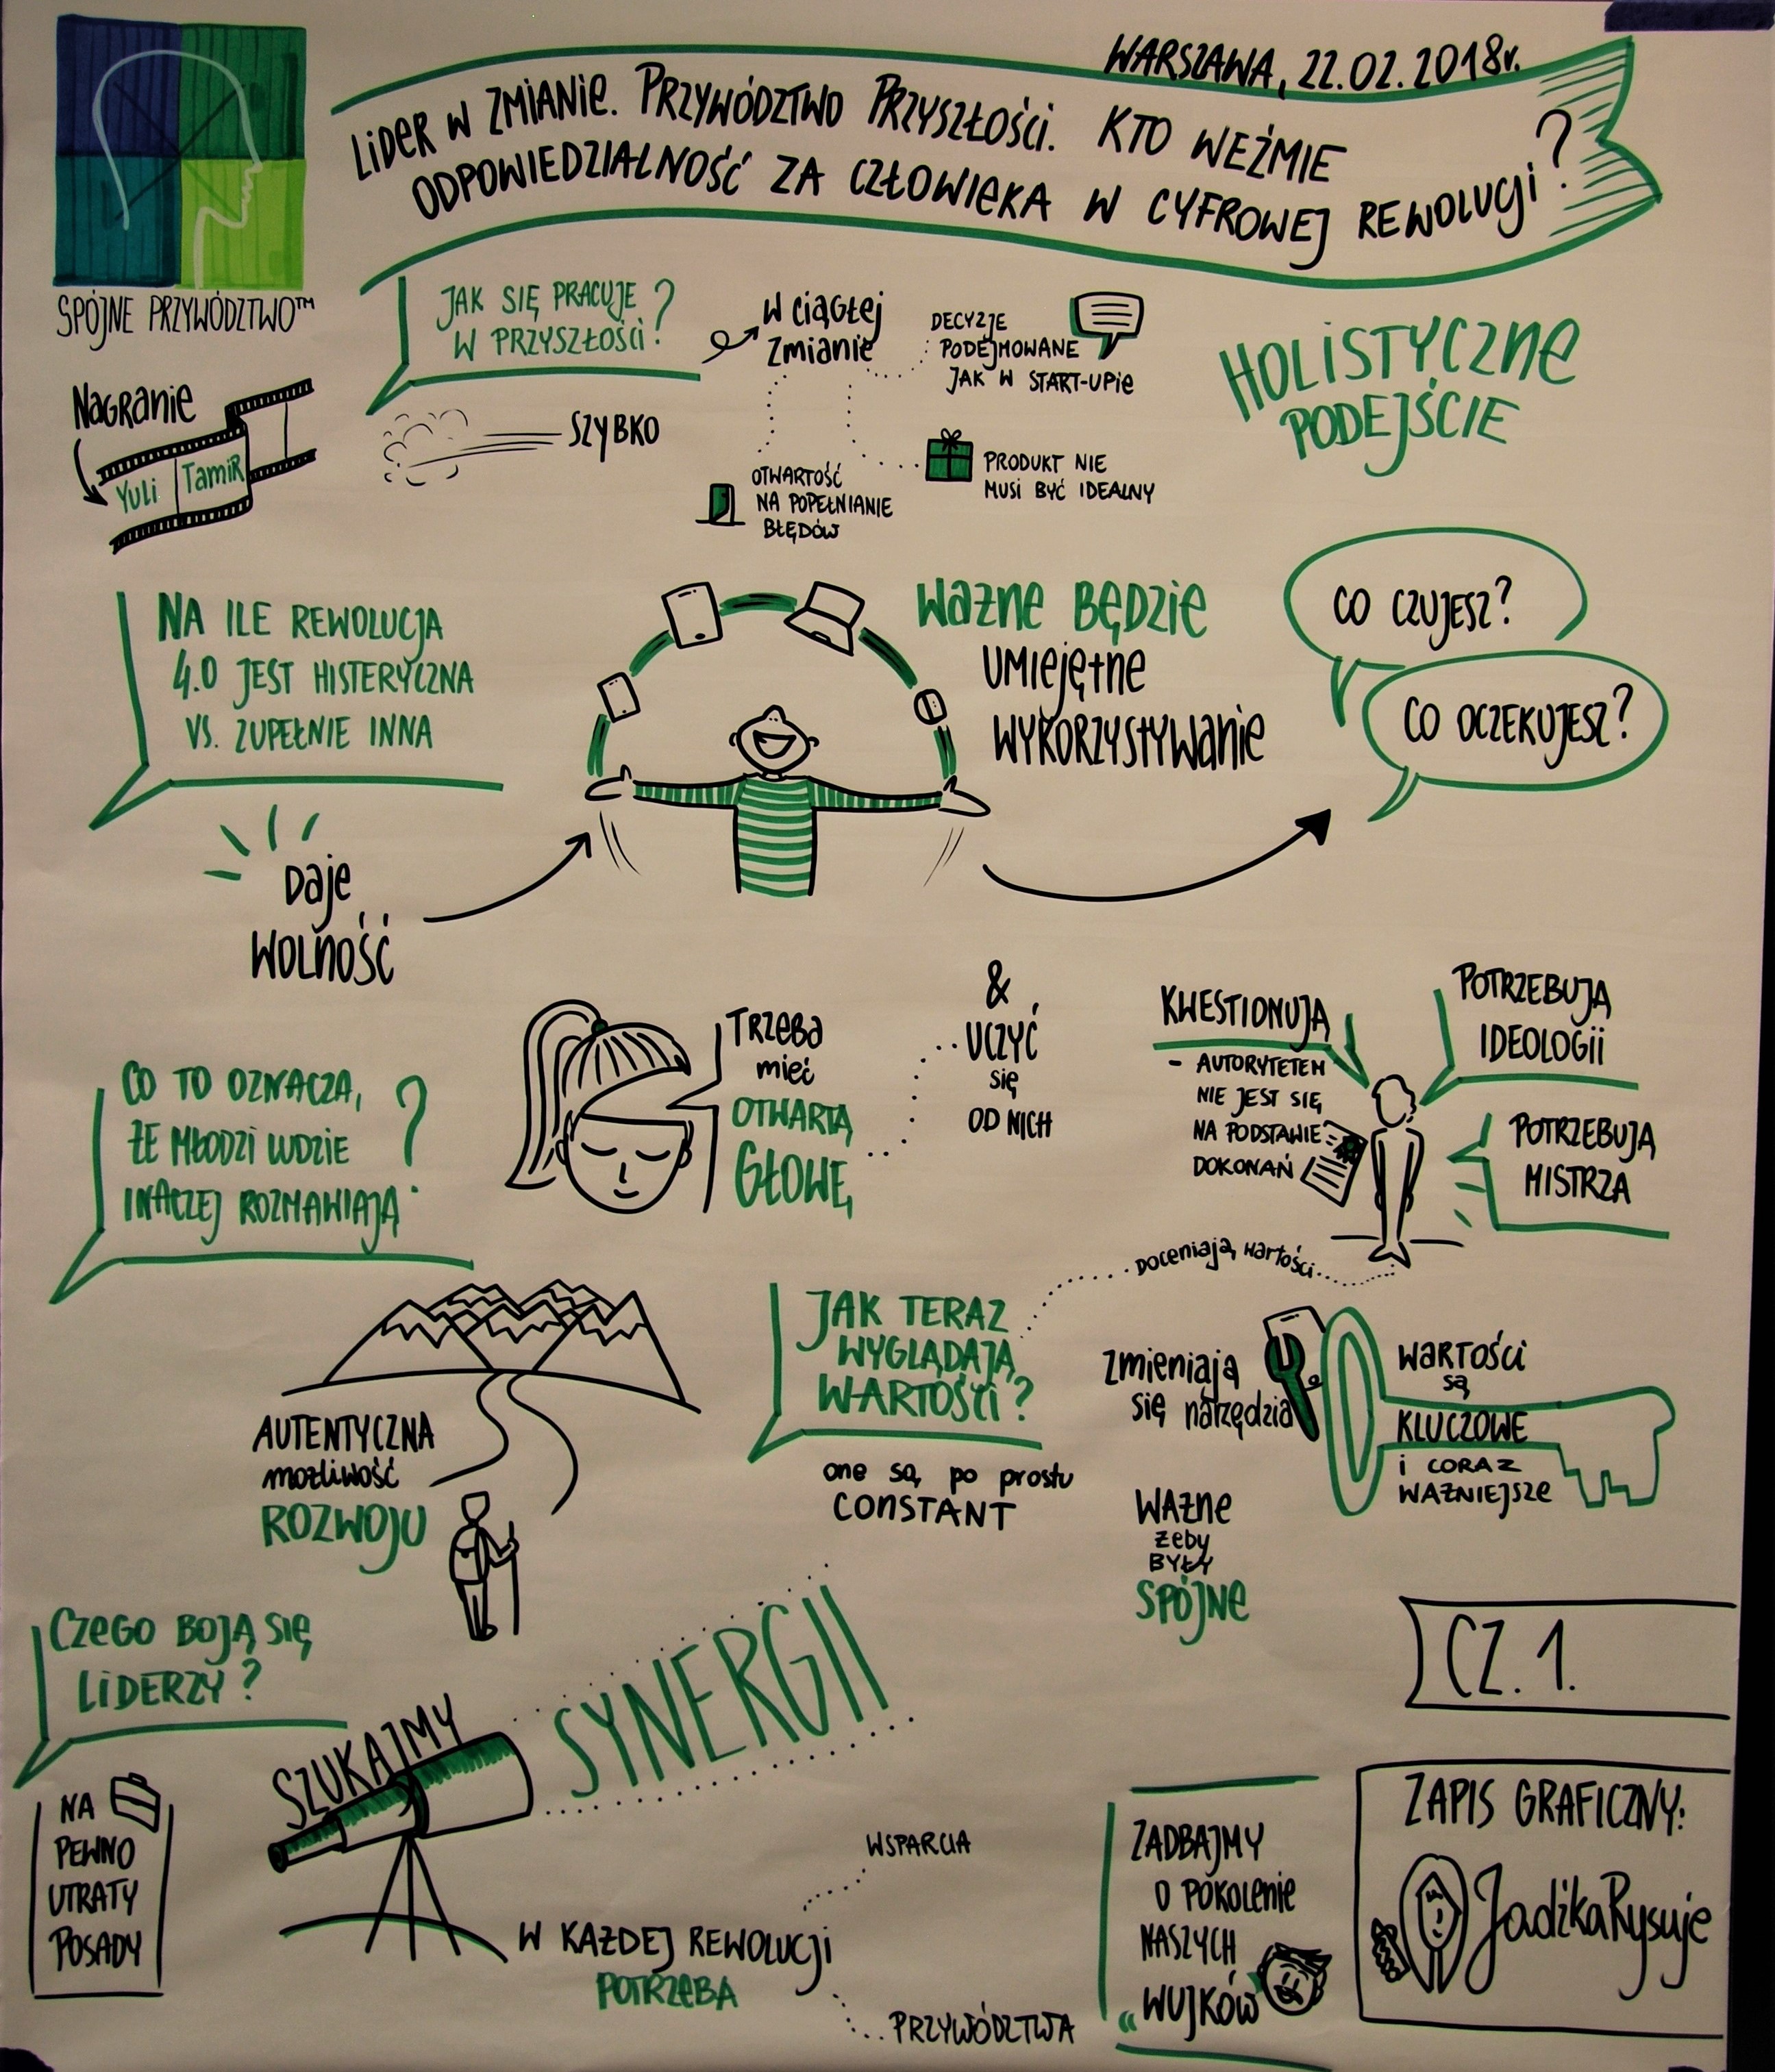 WARSZAWA, 22.02.2018r.
LIDER W ZMIANIE. PRZYWÓDZTWO PRZYSZŁOŚCI. KTO WEŹMIE
ODPOWIEDZIALNOŚĆ ZA CZŁOWIEKA W CYFROWEJ REWOLUCJI?
SPÓJNE PRZYWÓDZTWO™
NAGRANIE
YULI TAMIR
JAK SIĘ PRACUJE
W PRZYSZŁOŚCI?
W CIĄGŁEJ
ZMIANIE
DECYZJE
PODEJMOWANE
JAK W START-UPIE
SZYBKO
OTWARTOŚĆ
NA POPEŁNIANIE
BŁĘDÓW
PRODUKT NIE
MUSI BYĆ IDEALNY
HOLISTYCZNE
PODEJŚCIE
NA ILE REWOLUCJA
4.0 JEST HISTERYCZNA
VS. ZUPEŁNIE INNA
DAJE
WOLNOŚĆ
WAŻNE BĘDZIE
UMIEJĘTNE
WYKORZYSTYWANIE
CO CZUJESZ?
CO OCZEKUJESZ?
CO TO OZNACZA,
ŻE MŁODZI LUDZIE
INACZEJ ROZMAWIAJĄ?
TRZEBA
MIEĆ
OTWARTĄ
GŁOWĘ
&
UCZYĆ
SIĘ
OD NICH
KWESTIONUJĄ
- AUTORYTETEM
NIE JEST SIĘ
NA PODSTAWIE
DOKONAŃ
POTRZEBUJĄ
IDEOLOGII
POTRZEBUJĄ
MISTRZA
DOCENIAJĄ WARTOŚCI
AUTENTYCZNA
MOŻLIWOŚĆ
ROZWOJU
JAK TERAZ
WYGLĄDAJĄ
WARTOŚCI?
ONE SĄ PO PROSTU
CONSTANT
ZMIENIAJĄ
SIĘ NARZĘDZIA
WARTOŚCI
SĄ
KLUCZOWE
I CORAZ
WAŻNIEJSZE
WAŻNE
ŻEBY
BYŁY
SPÓJNE
CZEGO BOJĄ SIĘ
LIDERZY?
NA
PEWNO
UTRATY
POSADY
SZUKAJMY
SYNERGII
W KAŻDEJ REWOLUCJI
POTRZEBA
WSPARCIA
PRZYWÓDZTWA
ZADBAJMY
O POKOLENIE
NASZYCH
„WUJKÓW
CZ. 1.
ZAPIS GRAFICZNY:
JadźkaRysuje